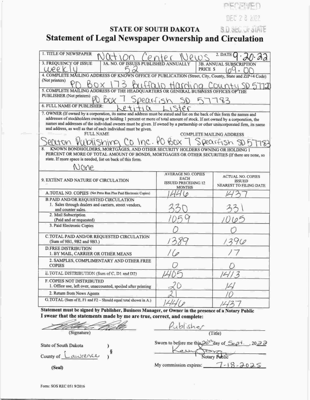 RECEIVED
STATE OF SOUTH DAKOTA
Statement of Legal Newspaper Ownership and Circulation
1. TITLE OF NEWSPAPER Nation Center News 2. DATE 9-20-22
3. FREQUENCY OF ISSUE weekly 3A. NO. OF ISSUES PUBLISHED ANNUALLY 52 3B. ANNUAL SUBSCRIPTION PRICE $ 69.00
4. COMPLETE MAILING ADDRESS OF KNOWN OFFICE OF PUBLICATION (Street, City, County, State and ZIP+4 Code)
(Not printers) PO Box 173 Buffalo Harding County SD 57720
5. COMPLETE MAILING ADDRESS OF THE HEADQUARTERS OR GENERAL BUSINESS OFFICES OF THE
PUBLISHER (Not printers) PO Box 7 Spearfish SD 57783
6. FULL NAME OF PUBLISHER: Letitia Lister
7. OWNER (If owned by a corporation, its name and address must be stated and
FULL NAME COMPLETE MAILING ADDRESS
Seaton Publishing Co Inc. PO Box 7 Spearfish SD 57783
8. KNOWN BONDHOLDERS, MORTGAGES, AND OTHER SECURITY HOLDERS OWNING OR HOLDING 1
PERCENT OR MORE OF TOTAL AMOUNT OF BONDS, MORTGAGES OR OTHER SECURITIES (If there are none, so
state. If more space is needed, list on back of this form.
None
9. EXTENT AND NATURE OF CIRCULATION
AVERAGE NO. COPIES EACH ISSUED PRECEDING 12 MONTHS
ACTUAL NO. COPIES ISSUED NEAREST TO FILING DATE
A. TOTAL NO. COPIES 1446 1437
B. PAID AND/OR REQUESTED CIRCULATION
1. Sales through dealers and carriers, street vendors, and counter sales. 330 331
2. Mail Subscription (Paid and or requested) 1059 1065
3. Paid Electronic Copies 0 0
C. TOTAL PAID AND/OR REQUESTED CIRCULATION (Sum of 9B1, 9B2 and 9B3.) 1389 1396
D. FREE DISTRIBUTION
1. BY MAIL, CARRIER OR OTHER MEANS 16 17
2. SAMPLES, COMPLIMENTARY AND OTHER FREE COPIES 0 0
E. TOTAL DISTRIBUTION (Sum of C, D1 and D2) 1405 1413
F. COPIES NOT DISTRIBUTED
1. Office use, left over, unaccounted, spoiled after printing 20 14
2. Return from News Agents 21 10
G. TOTAL (Sum of E, F1 and F2 - Should equal total shown in A.) 1446 1437
Statement must be signed by Publisher, Business Manager, or Owner in the presence of a Notary Public
I swear that the statements made by me are true, correct, and complete:
Publisher
(Signature) (Title)
State of South Dakota )
County of Lawrence ) §
Sworn to before me this 20 day of Sept, 2022
Notary Public
(Seal) My commission expires: 7-18-2025
Form: SOS REC 051 9/2016